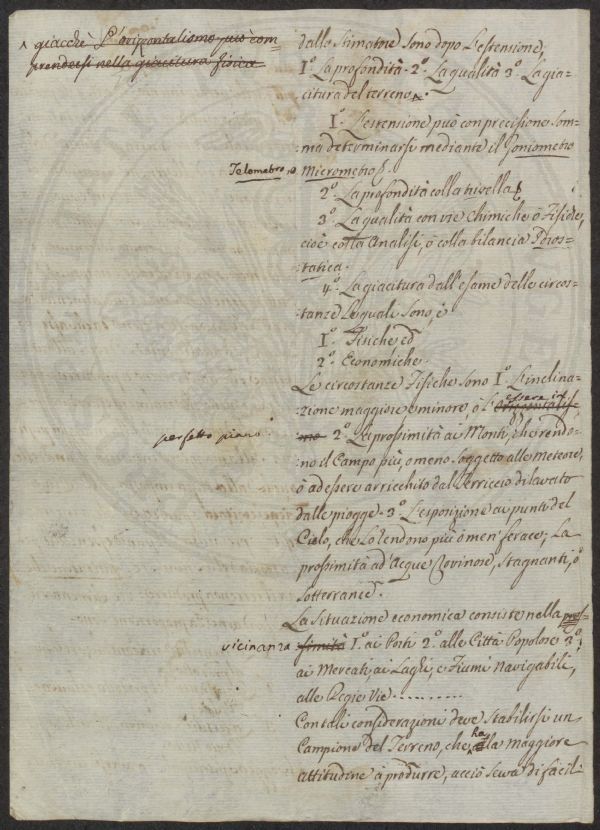 ^ giacchè L'orizontalismo può com-
prendersi nella giacitura fisica
dallo Stimatore sono dopo L'estensione,
1.º La profondità 2.º La qualità 3.º La gia-
citura del terreno ^.
1.º L'estensione può con precisione som-
ma determinarsi mediante il Goniometro
Telometro, o
Micrometro.
2.º La profondità colla trivella
3.º La qualità con vie chimiche ò Fisiche,
cioè colla Analisi, ò colla bilancia Idros-
tatica.
4.º La giacitura dall'esame delle circos-
tanze Le quali sono, è
1.º Fisiche ed
2.º Economiche.
Le circostanze Fisiche sono 1.º L'inclina-
zione maggiore e minore, ò l'orizontalis-
essere in
perfetto piano
mo 2.º La prossimità ai Monti, che rendo-
no il Campo più, o meno soggetto alle meteore,
ò ad essere arricchito dal Terriccio dilavato
dalle piogge. 3.º L'esposizione ai punti del
Cielo, che Lo rendono più ò men' ferace; La
prossimità ad' Acque Rovinose, Stagnanti, ò
sotterranee.
La Situazione economica consiste nella pros-
vicinanza
simità 1.º ai Porti 2.º alle Città Popolose 3.º
ai Mercati, ai Laghi, e Fiumi navigabili,
alle Regie Vie..........
Con tali considerazioni deve Stabilirsi un
Campione del Terreno, che ha la maggiore
attitudine à produrre, acciò serva di facil